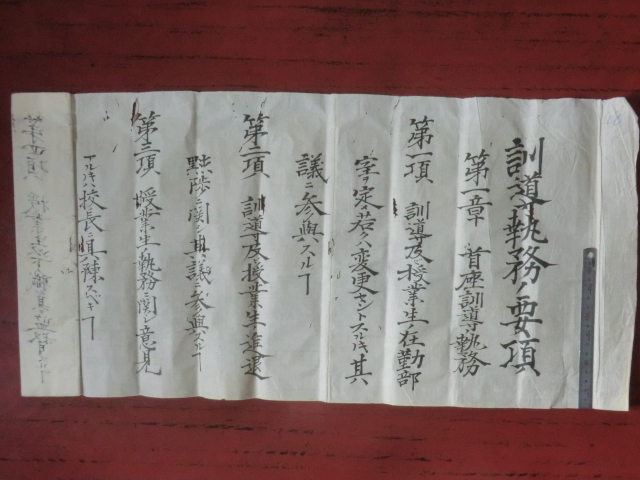 訓導執務ノ要項
第一章 首座訓導執務
第一項 訓導及授業生在勤部
室ヲ定若クハ変更セントスルトキ其
議ニ参與スルヿ
第二項 訓導及授業生進退
黜陟ニ関シ其議ニ参與スルヿ
第三項 授業生執務ニ関シ意見
アルトキハ校長ニ具陳スベキヿ
第四項 授業生